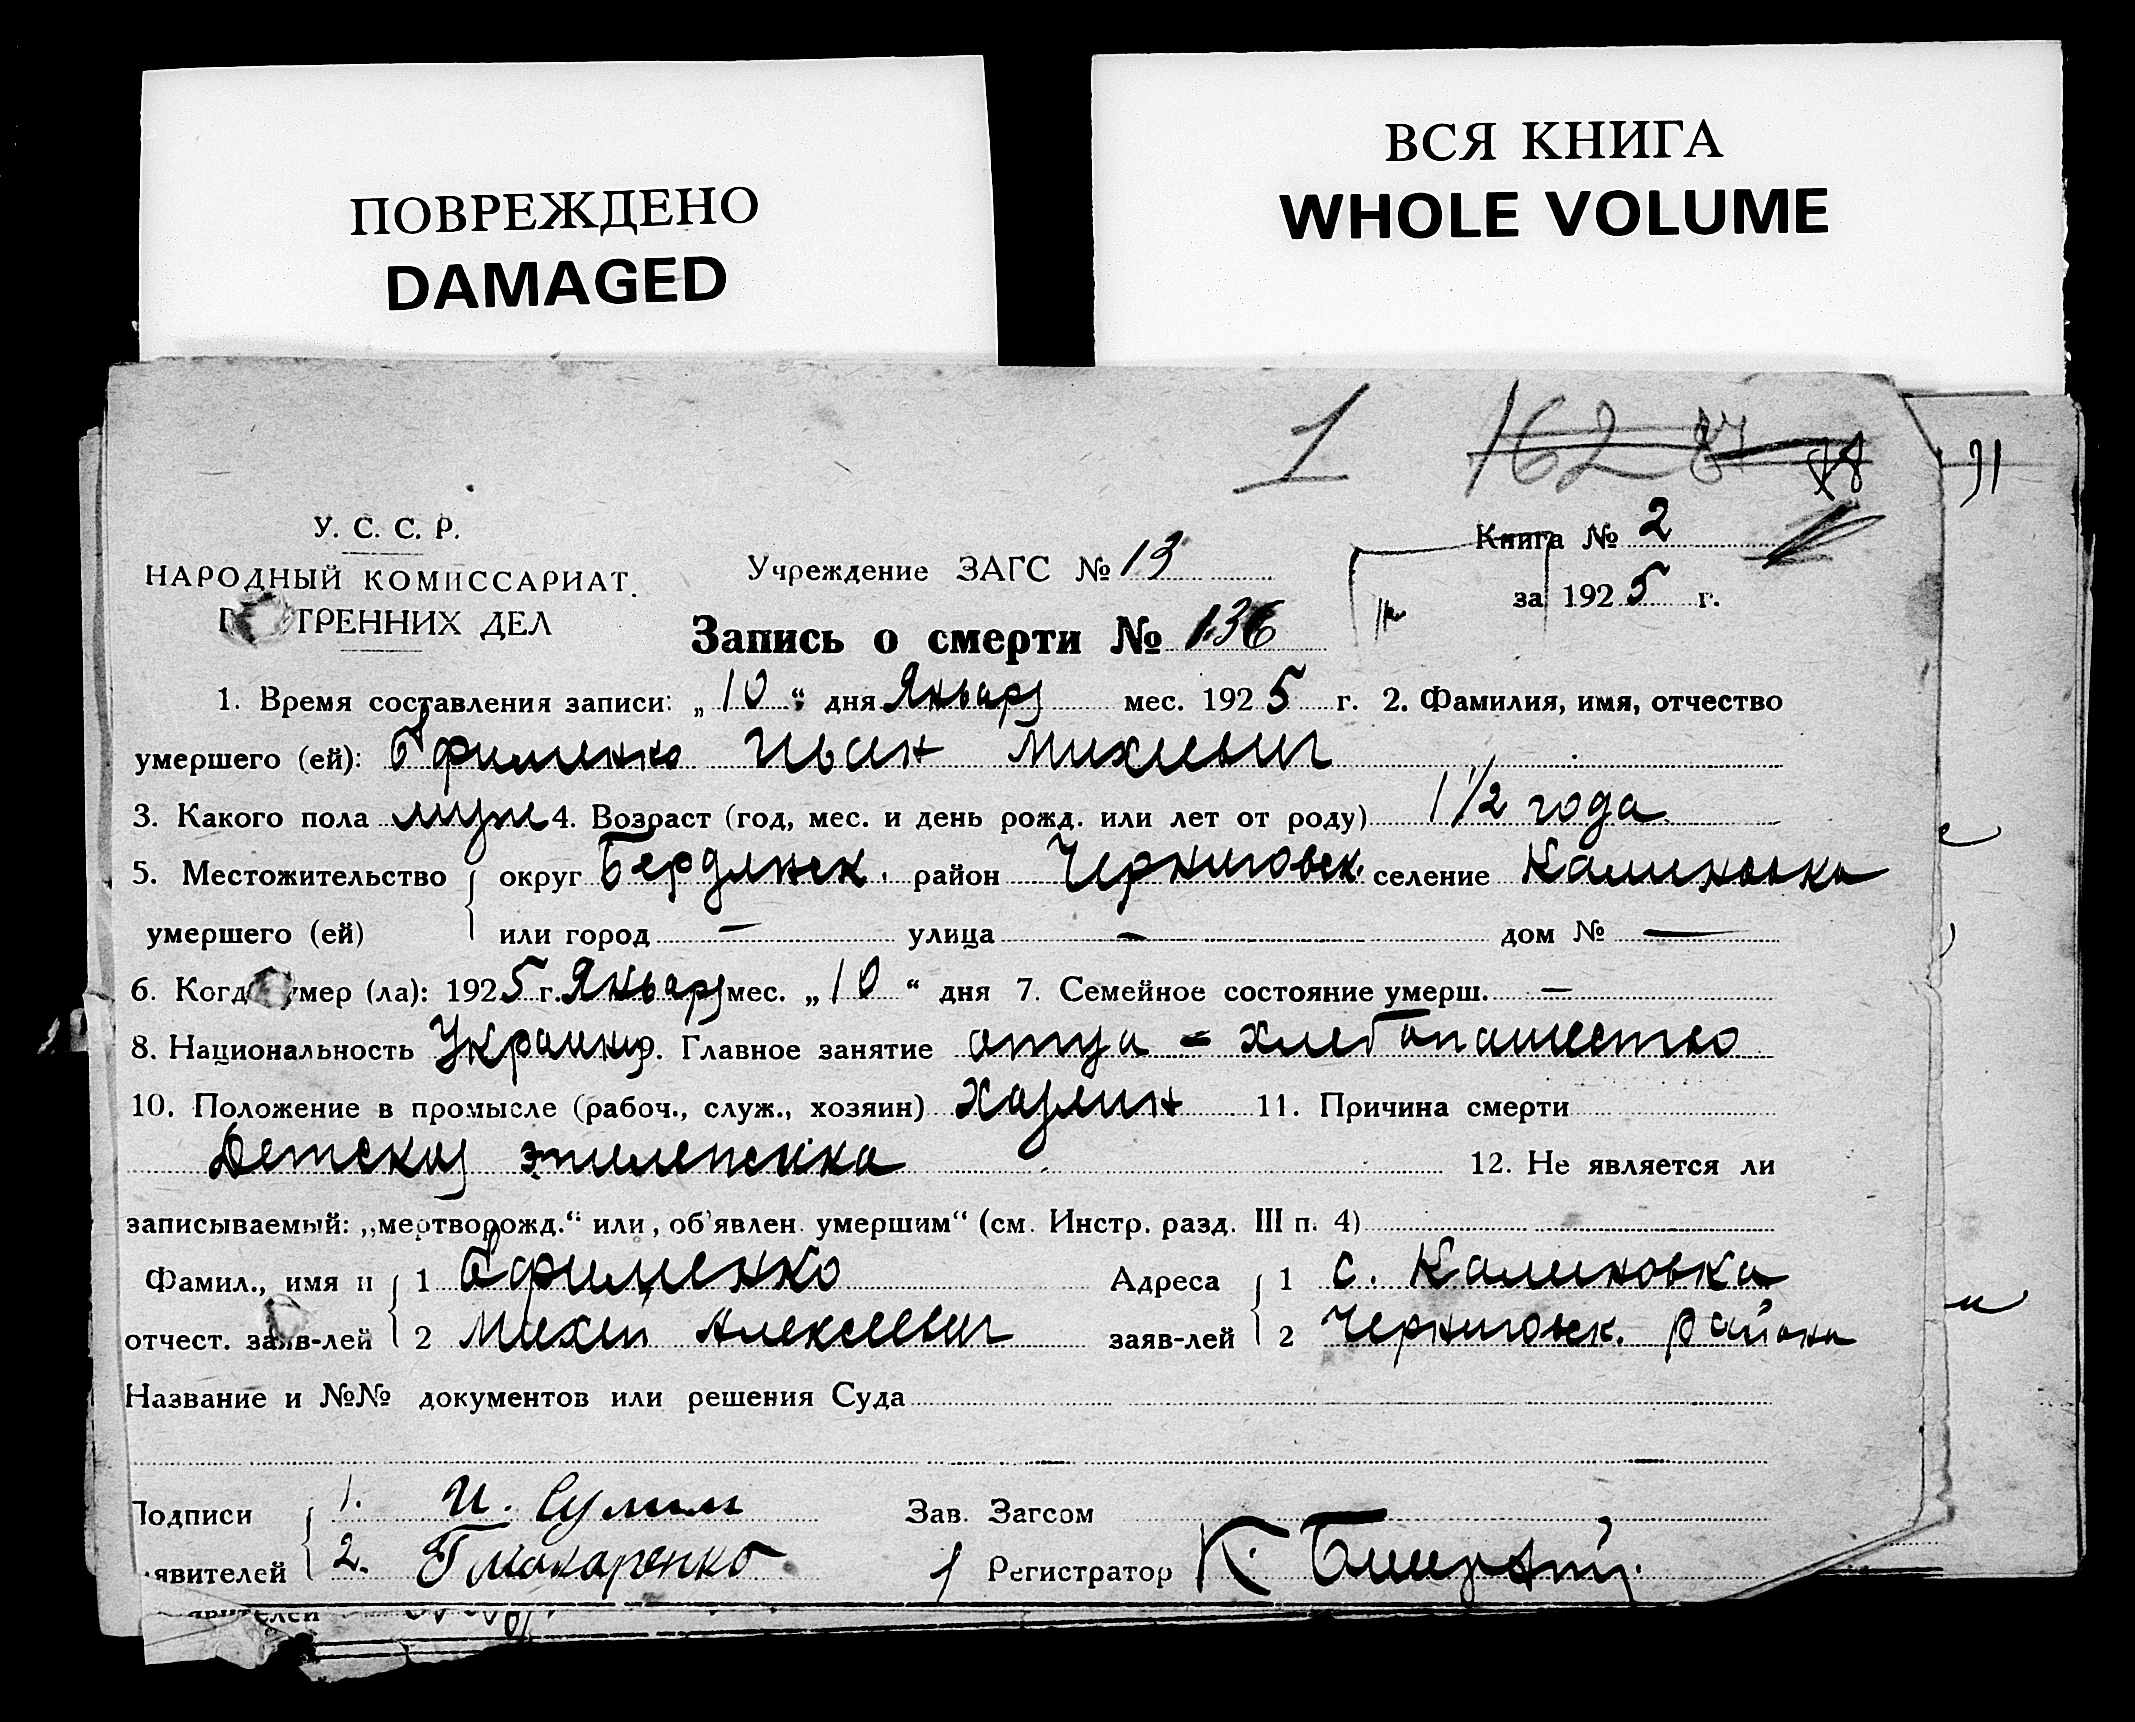 ПОВРЕЖДЕНО
DAMAGED
ВСЯ КНИГА
WHOLE VOLUME
1 162 87 78 91
У. С. С. Р.
НАРОДНЫЙ КОМИССАРИАТ
ТРЕННИХ ДЕЛ
Учреждение ЗАГС № 13
Книга № 2
за 1925 г.
Запись о смерти № 136
1. Время составления записи: „10“ дня Январ мес. 1925 г. 2. Фамилия, имя, отчество
умершего (ей): Ефименко Иван Михеевич
3. Какого пола муж 4. Возраст (год, мес. и день рожд. или лет от роду) 1 1/2 года
5. Местожительство округ Бердянск. район Черниговск. селение Калиновка
умершего (ей) или город — улица — дом № —
6. Когда умер (ла): 1925 г. Январ мес. „10“ дня 7. Семейное состояние умерш. —
8. Национальность Украин 9. Главное занятие отца - хлебопашество
10. Положение в промысле (рабоч., служ., хозяин) Хазяин 11. Причина смерти
Детская эпилепсика 12. Не является ли
записываемый: „мертворожд.“ или „об'явлен умершим“ (см. Инстр. разд. III п. 4)
Фамил., имя и 1 Ефименко Адреса 1 с. Калиновка
отчест. заяв-лей 2 Михей Алексеевич заяв-лей 2 Черниговск. района
Название и №№ документов или решения Суда
Подписи 1. И. Сулим Зав. Загсом
явителей 2. Г Макаренко Регистратор К.
явителей